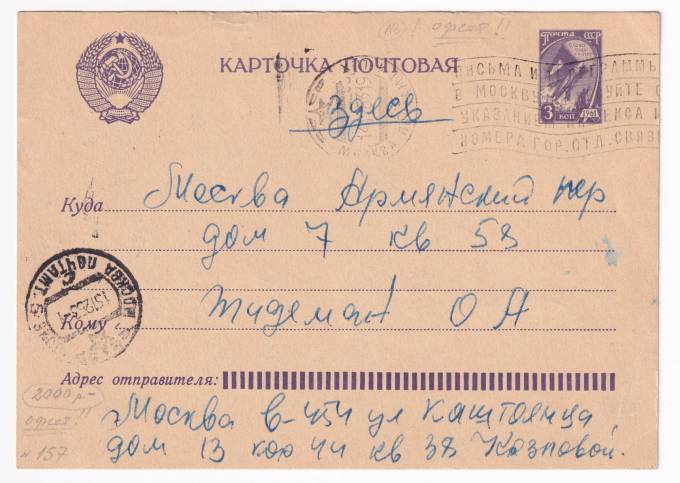 (№)! офсет!!
ПОЧТА СССР
КАРТОЧКА ПОЧТОВАЯ
ПИСЬМА И ТЕЛЕГРАММЫ
В МОСКВУ
УКАЗАНИЕМ ИНДЕКСА И
НОМЕРА ГОР. ОТД. СВЯЗИ
3 КОП. 1961
Здесь
МОСКВА
Куда Москва Армянский пер
дом 7 кв 58
МОСКВА ПОЧТАМТ
Кому Тидеман О А
Адрес отправителя:
2000 р-
офсет!!
Москва В-454 ул Каштоянца
дом 13 кор 44 кв 38 Козловой.
№ 157